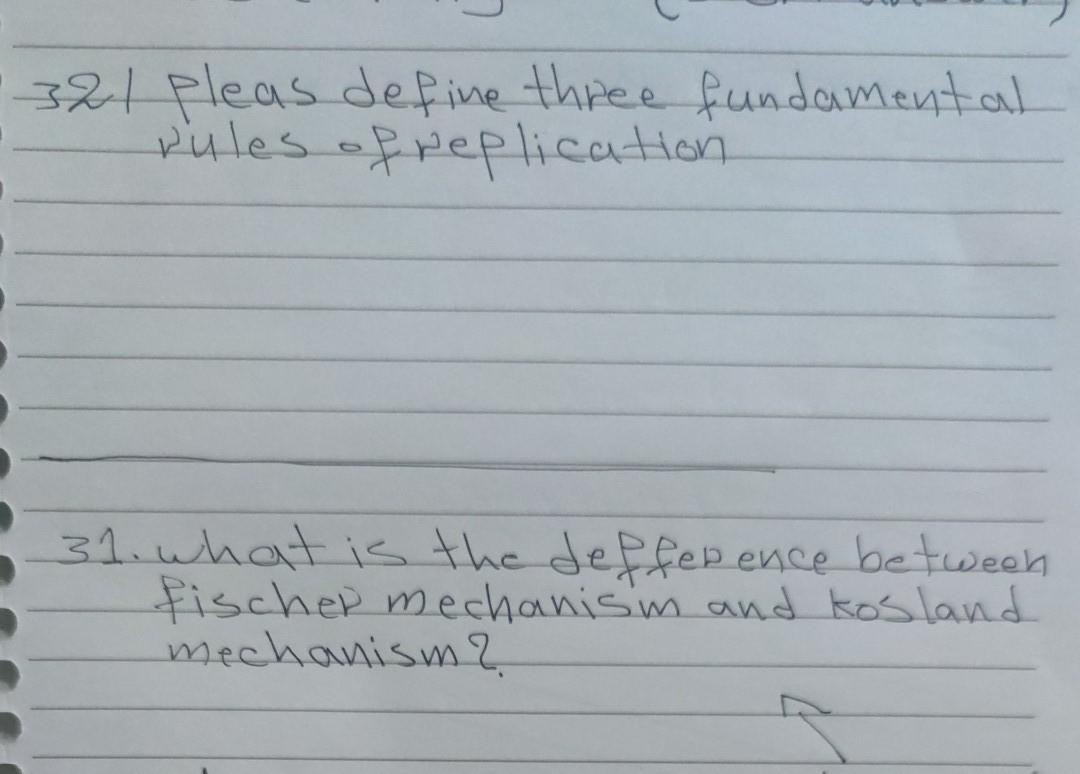 321 Pleas define three fundamental
rules of replication
31. what is the defference between
fischer mechanism and kosland
mechanism?